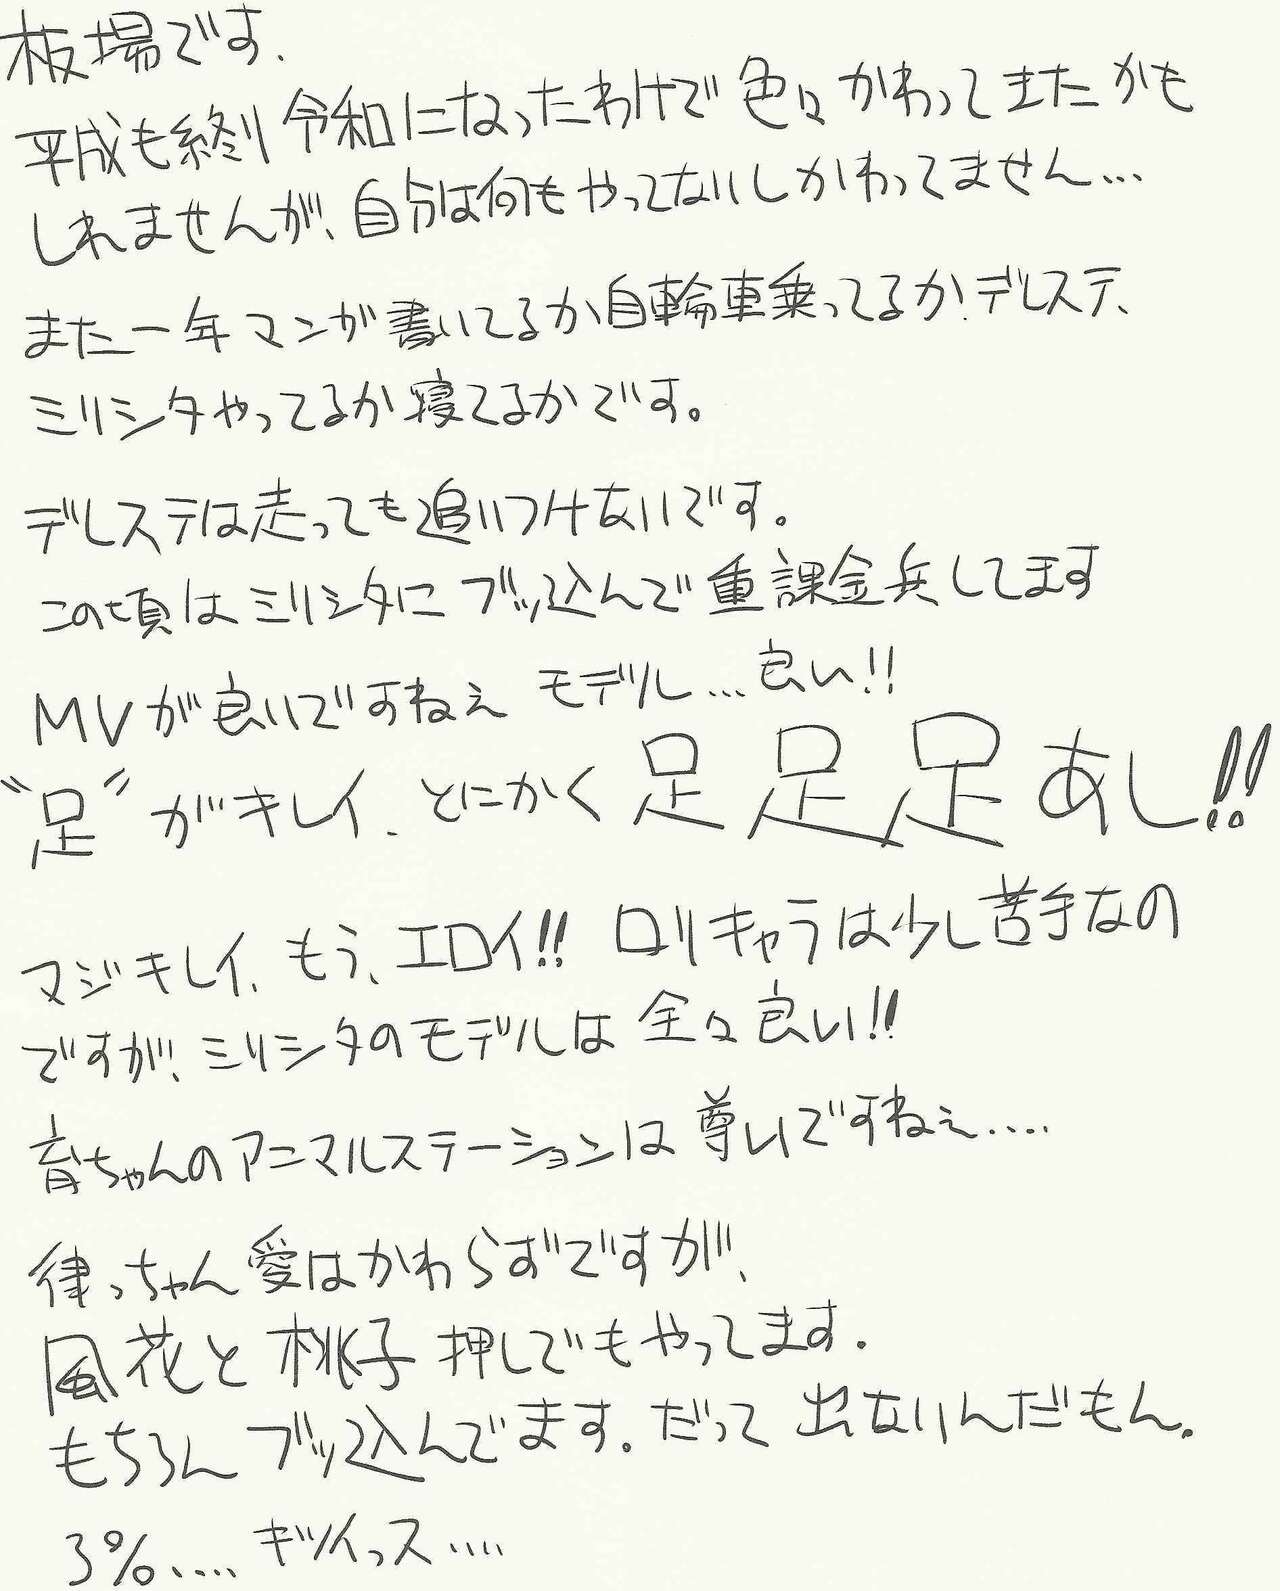 板場です.
平成も終り令和になったわけで色々かわってまたかも
しれませんが、自分は何もやってないしかわってません…
また一年マンが書いてるか自輪車乗ってるか、デレステ、
ミリシタやってるか寝てるかです。
デレステは走っても追いつけないです。
この頃はミリシタにブッ込んで重課金兵してます
MVが良いですねぇ モデル…良い!!
〝足〟がキレイ、とにかく足足足あし!!
マジキレイ、もう、エロイ!! ロリキャラは少し苦手なの
ですが、ミリシタのモデルは全々良い!!
育ちゃんのアニマルステーションは尊いですねぇ....
律っちゃん愛はかわらずですが、
風花と桃子押しでもやってます.
もちろんブッ込んでます。だって出ないんだもん.
3%.... キツイっス....